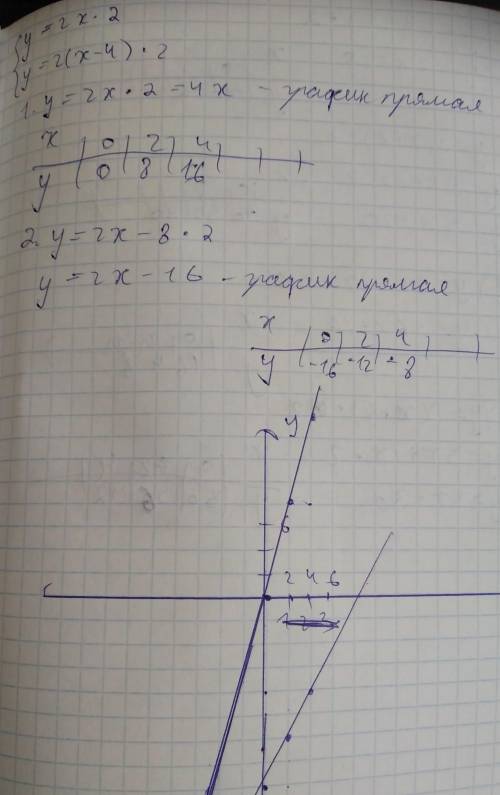 {y = 2x · 2
{y = 2(x-4) · 2
1. y = 2x · 2 = 4x - график прямая
x | 0 | 2 | 4 | |
y | 0 | 8 | 16
2. y = 2x - 8 · 2
y = 2x - 16 - график прямая
x | 0 | 2 | 4 | |
y | -16 | -12 | -8
y
6
2 4 6